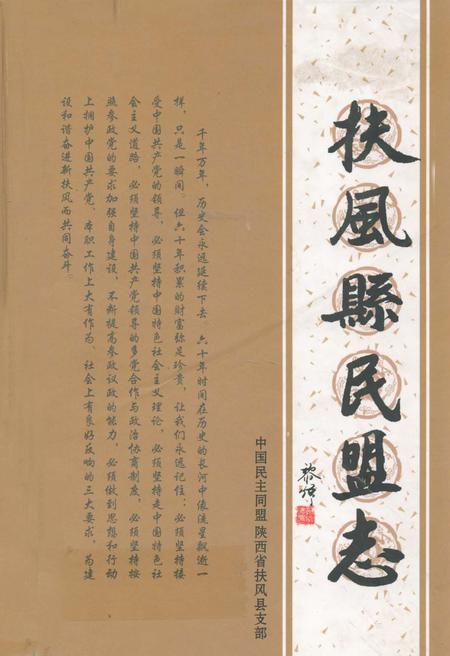 扶風縣民盟志
中国民主同盟 陕西省扶风县支部
千年万年，历史会永远延续下去。六十年时间在历史的长河中像流星飘逝一
样，只是一瞬间。但六十年积累的财富弥足珍贵，让我们永远记住：必须坚持接
受中国共产党的领导，必须坚持中国特色社会主义理论，必须坚持走中国特色社
会主义道路，必须坚持中国共产党领导的多党合作与政治协商制度，必须坚持按
照参政党的要求加强自身建设，不断提高参政议政的能力，必须做到思想和行动
上拥护中国共产党、本职工作上大有作为、社会上有良好反响的三大要求，为建
设和谐奋进新扶风而共同奋斗。